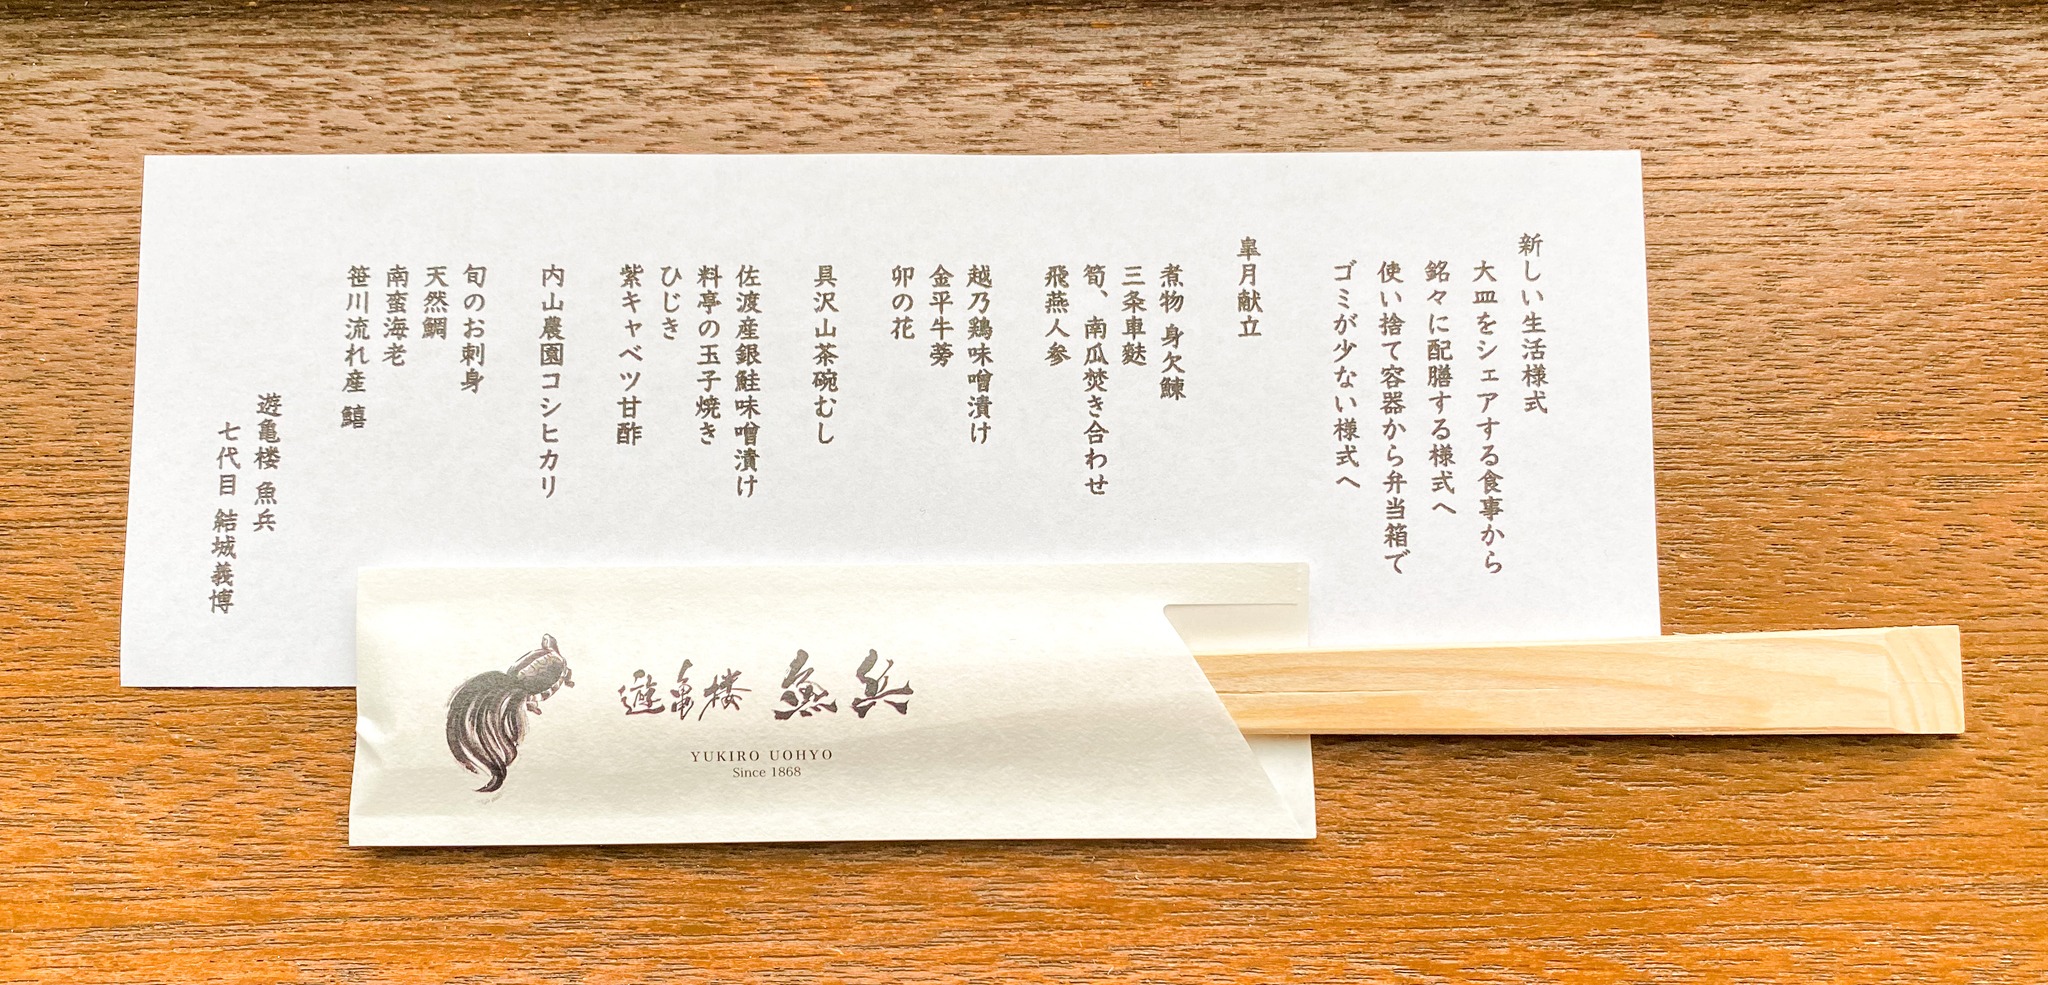 新しい生活様式
大皿をシェアする食事から
銘々に配膳する様式へ
使い捨て容器から弁当箱で
ゴミが少ない様式へ
皐月献立
煮物 身欠鰊
三条車麩
筍、南瓜焚き合わせ
飛燕人参
越乃鶏味噌漬け
金平牛蒡
卯の花
具沢山茶碗むし
佐渡産銀鮭味噌漬け
料亭の玉子焼き
ひじき
紫キャベツ甘酢
内山農園コシヒカリ
旬のお刺身
天然鯛
南蛮海老
笹川流れ産 鱚
遊亀楼 魚兵
七代目 結城義博
遊亀楼 魚兵
YUKIRO UOHYO
Since 1868